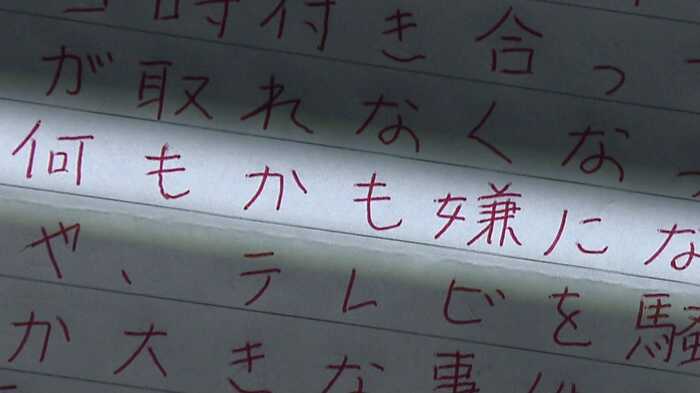 時付き合っ
が取れなくなっ
何もかも嫌にな
や、テレビを騒
か大きな事